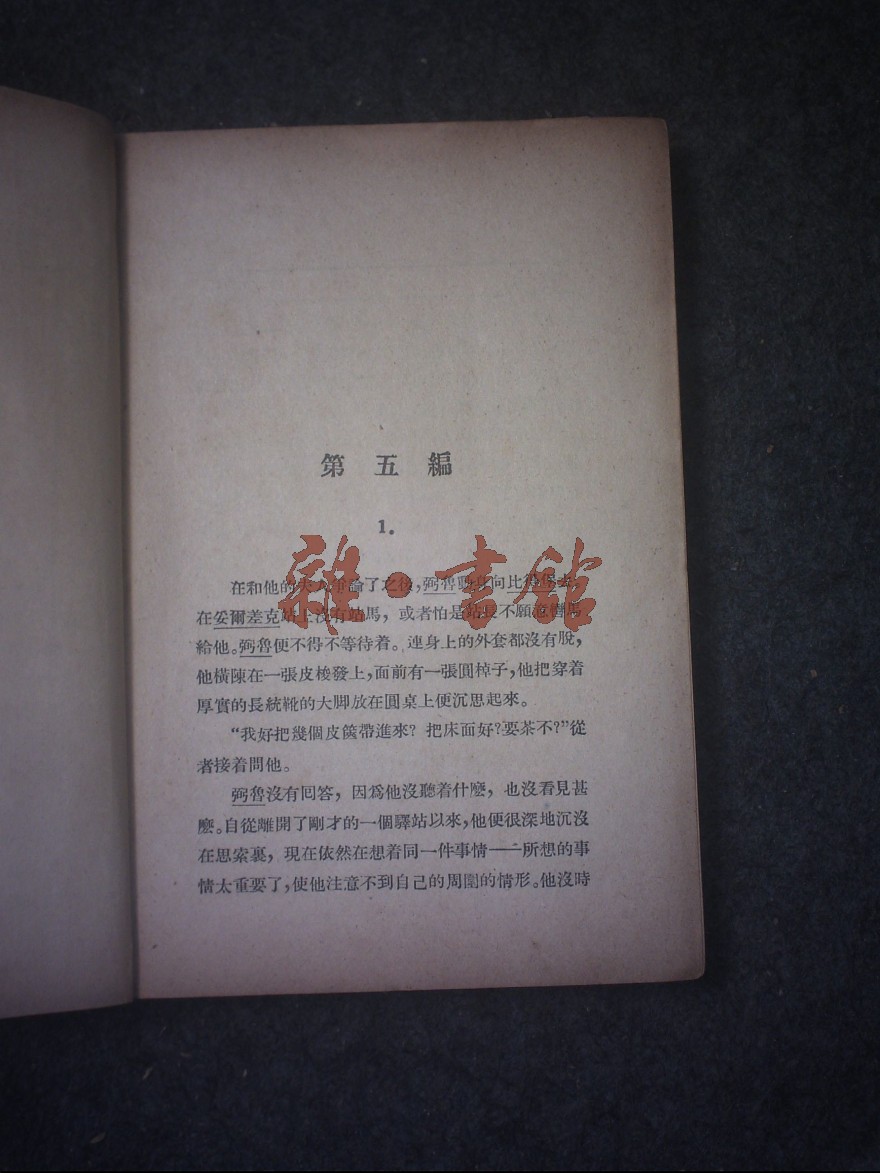 第五編
1.
在和他的夫人爭論了之後，弼魯動身向比得堡去。
在妥爾差克站上沒有站馬，或者怕是站長不願意替馬
給他。弼魯便不得不等待着。連身上的外套都沒有脫，
他橫陳在一張皮梭發上，面前有一張圓棹子，他把穿着
厚實的長統靴的大脚放在圓桌上便沉思起來。
“我好把幾個皮篋帶進來？把床面好？要茶不？”從
者接着問他。
弼魯沒有回答，因爲他沒聽着什麼，也沒看見甚
麼。自從離開了剛才的一個驛站以來，他便很深地沉沒
在思索裏，現在依然在想着同一件事情——所想的事
情太重要了，使他注意不到自己的周圍的情形。他沒時
雜·書館